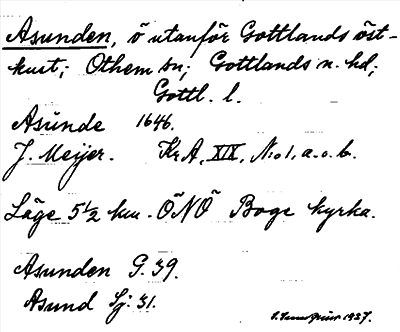 Asunden, ö utanför Gottlands öst-
kust; Othem sn; Gottlands n. hd;
Gottl. l.
Asünde 1646.
J. Meijer. KrA, XIX, N:o 1, a.o.b.
Läge 5 1/2 km. ÖNÖ Boge kyrka.
Asunden G. 39.
Asund Sj: 31.
1937.